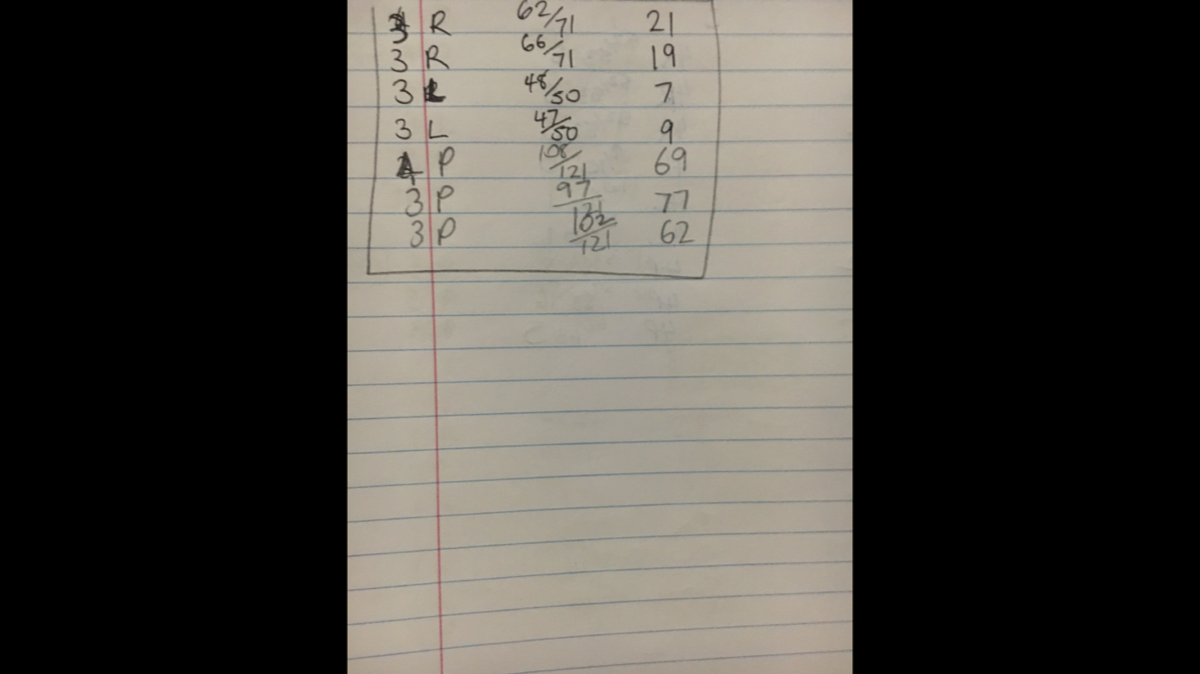 R 62/71 21
3 R 66/71 19
3 L 48/50 7
3 L 47/50 9
P 108/121 69
3 P 97/121 77
3 P 102/121 62